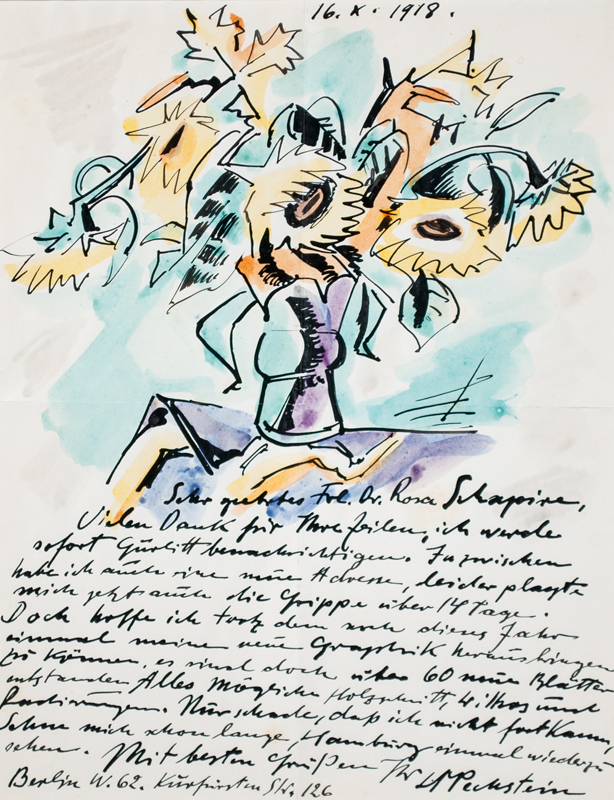 16. X. 1918.
Sehr geehrtes Frl. Dr. Rosa Schapire,
Vielen Dank für Ihre Zeilen, ich werde
sofort Gurlitt benachrichtigen. Inzwischen
habe ich auch eine neue Adresse, leider plagte
mich jetzt auch die Grippe über 14 Tage.
Doch hoffe ich trotz dem noch dieses Jahr
einmal meine neue Graphik herausbringen
zu können, es sind doch über 60 neue Blätter
entstanden Alles Mögliche Holzschnitt, Lithos und
Radierungen. Nur schade, daß ich nicht fort kann,
Sehne mich schon lange, Hamburg einmal wiederzu
sehen. Mit besten Grüßen Ihr HMPechstein
Berlin W. 62. Kurfürsten Str. 126